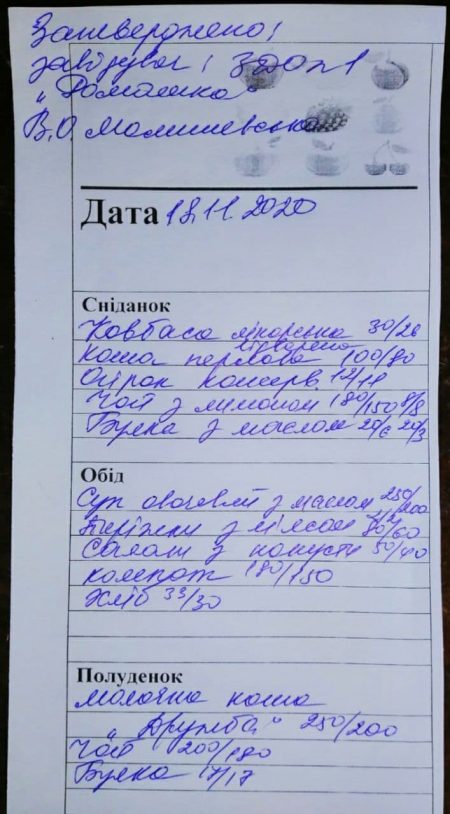 Затверджено:
завідувач: ЗДО №1
„Ромашка"
В.О. Малишевська
Дата 18.11.2020
Сніданок
Ковбаса лікарська варена 30/26
Каша перлова 100/80
Огірок консерв. 12/11
Чай з лимоном 180/150 8/8
Булка з маслом 20/6 20/3
Обід
Суп овочевий з маслом 250/200
з м'ясом 80/60
Салат з капусти 50/40
компот 180/150
Хліб 33/30
Полуденок
молочна каша
„Дружба" 250/200
Чай 200/180
Булка 17/17